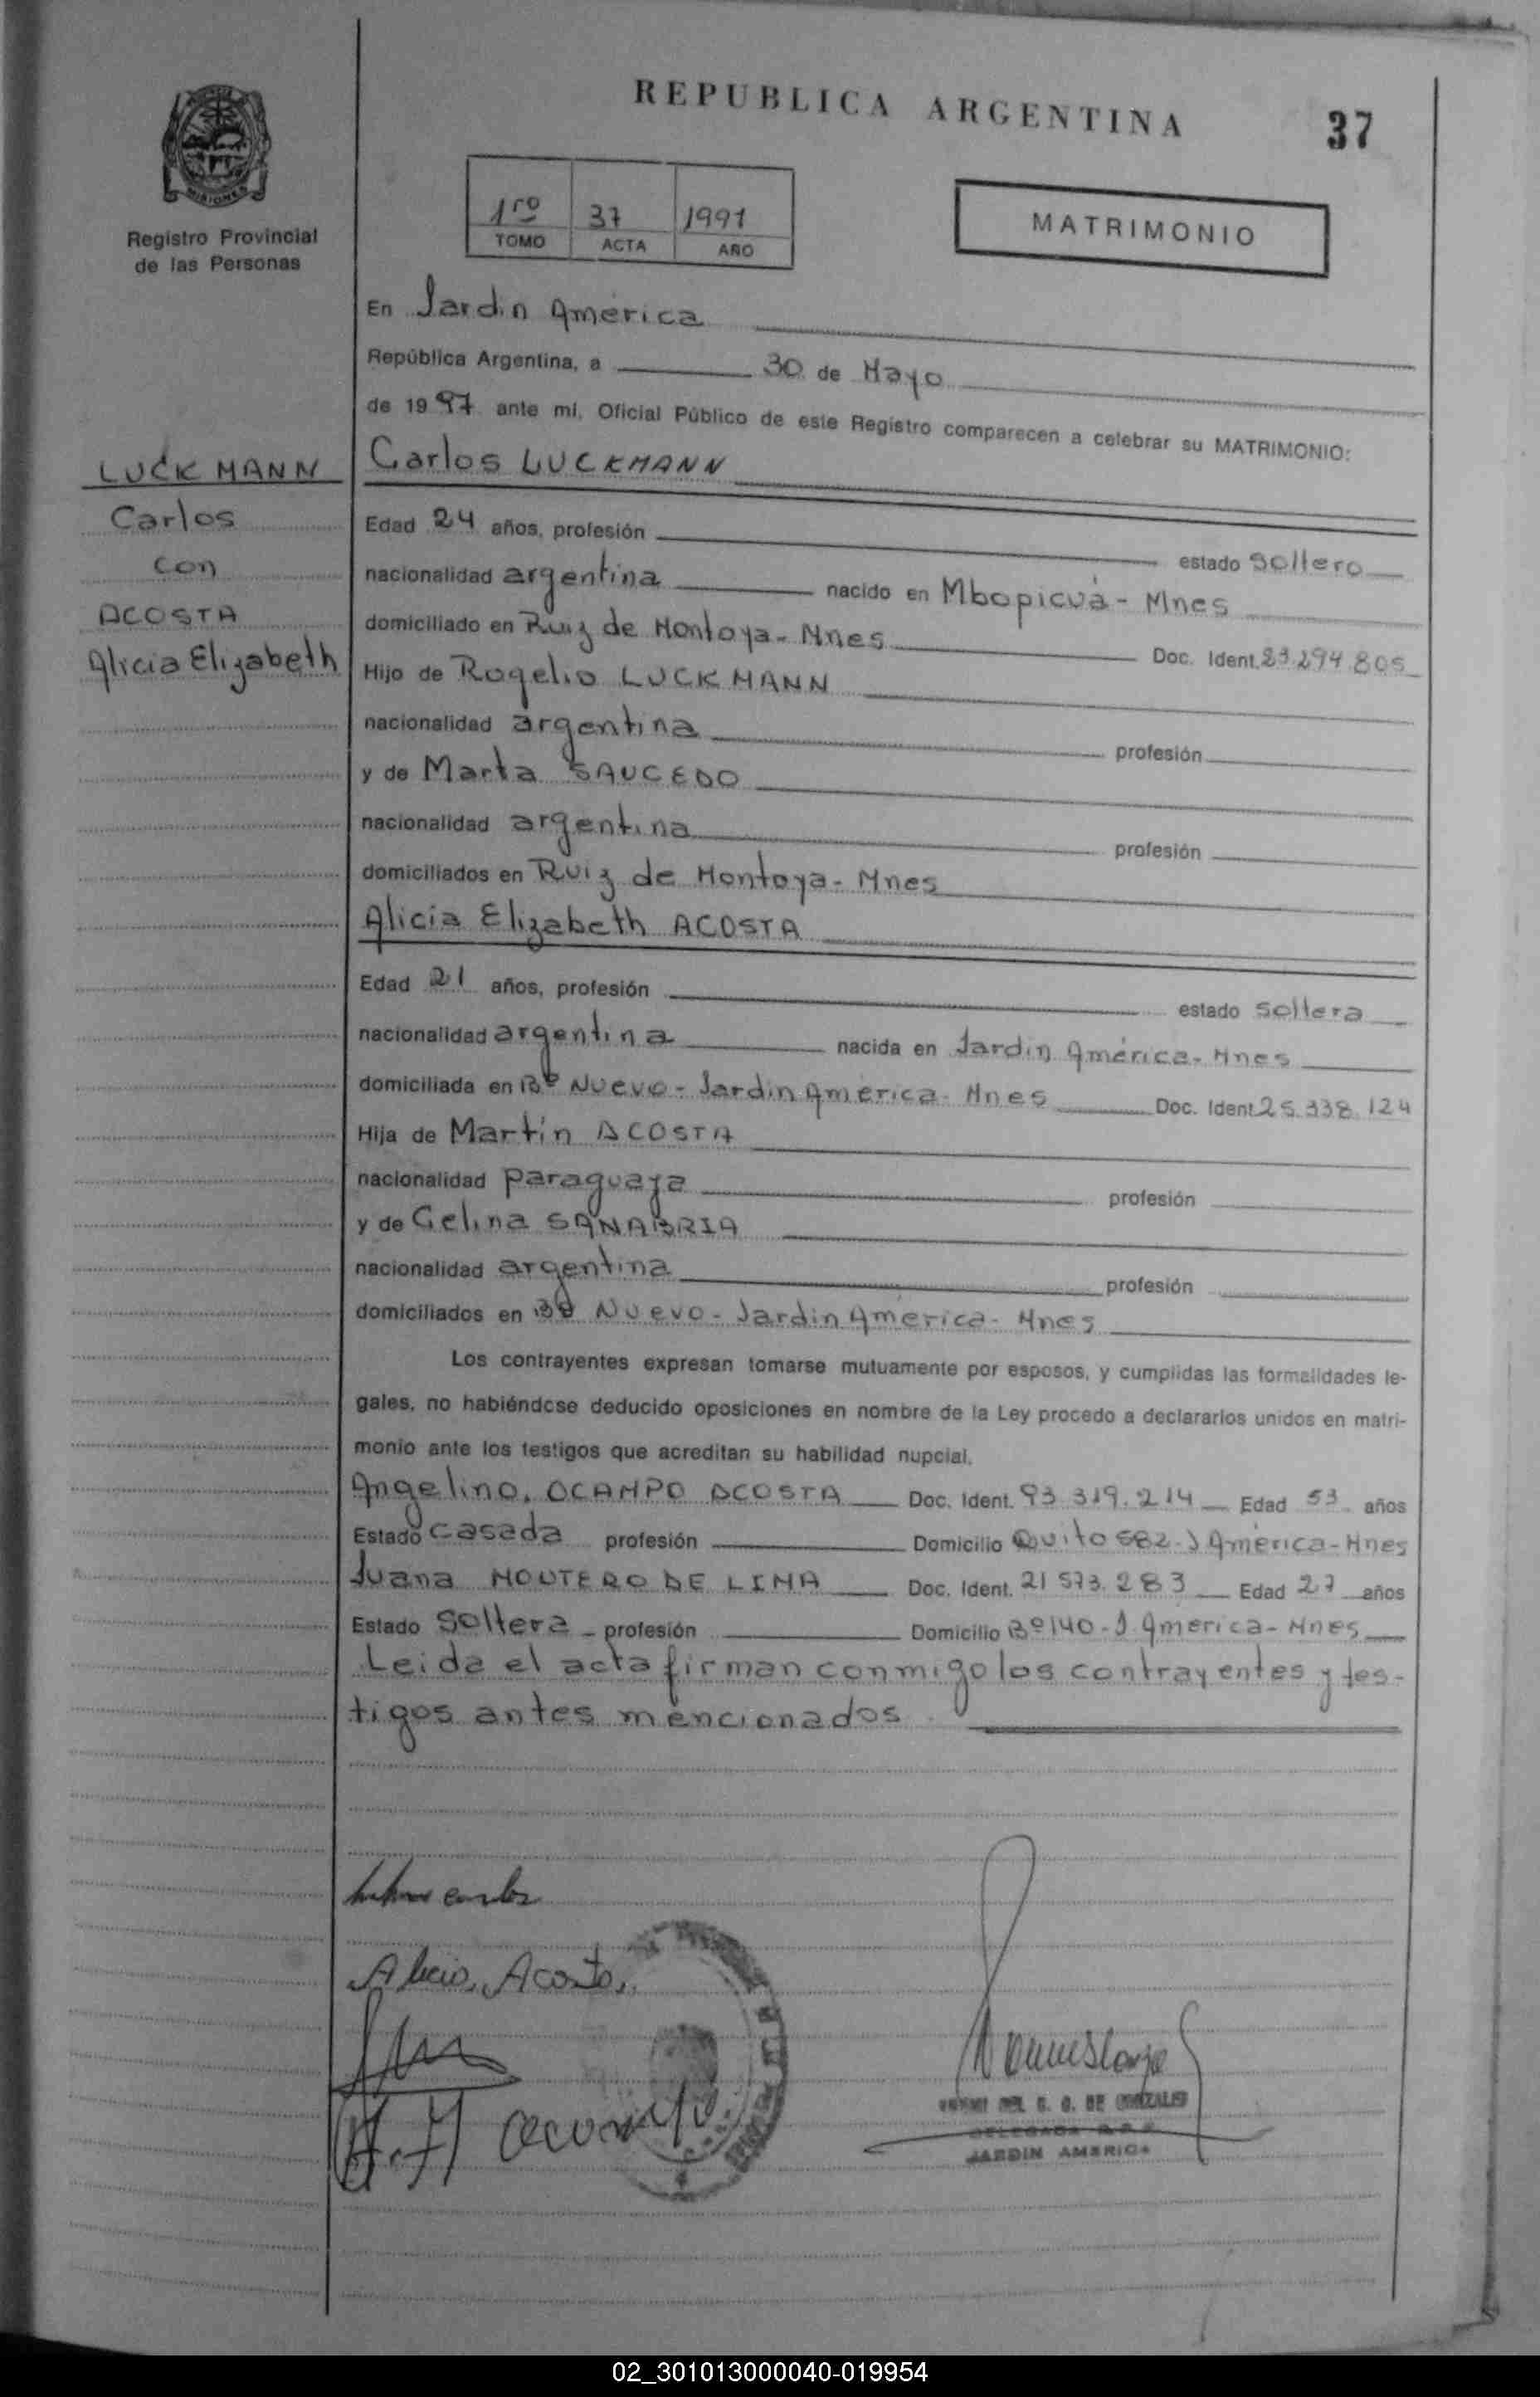 REPUBLICA ARGENTINA
37
MISIONES
Registro Provincial
de las Personas
1ro 37 1991
TOMO ACTA AÑO
MATRIMONIO
En Jardin América
República Argentina, a 30 de Mayo
de 1997 ante mí, Oficial Público de este Registro comparecen a celebrar su MATRIMONIO:
LUCKMANN
Carlos
con
ACOSTA
Alicia Elizabeth
Carlos LUCKMANN
Edad 24 años, profesión estado soltero
nacionalidad argentina nacido en Mbopicuá - Mnes
domiciliado en Ruiz de Montoya - Mnes Doc. Ident. 23.294.805
Hijo de Rogelio LUCKMANN
nacionalidad argentina profesión
y de Marta SAUCEDO
nacionalidad argentina profesión
domiciliados en Ruiz de Montoya - Mnes
Alicia Elizabeth ACOSTA
Edad 21 años, profesión estado soltera
nacionalidad argentina nacida en Jardin América - Mnes
domiciliada en Bº Nuevo - Jardin América - Mnes Doc. Ident 25.338.124
Hija de Martín ACOSTA
nacionalidad paraguaya profesión
y de Celina SANABRIA
nacionalidad argentina profesión
domiciliados en Bº Nuevo - Jardin América - Mnes
Los contrayentes expresan tomarse mutuamente por esposos, y cumplidas las formalidades le-
gales, no habiéndose deducido oposiciones en nombre de la Ley procedo a declararlos unidos en matri-
monio ante los testigos que acreditan su habilidad nupcial.
Angelina OCAMPO ACOSTA Doc. Ident. 93.319.214 Edad 53 años
Estado casada profesión Domicilio Quito 582 - J América - Mnes
Juana MOUTERO DE LIMA Doc. Ident. 21 573.283 Edad 27 años
Estado Soltera - profesión Domicilio Bº 140 - J. América - Mnes
Leída el acta firman conmigo los contrayentes y tes-
tigos antes mencionados.
carlos
Alicia Acosta
DE GONZALEZ
JARDIN AMERICA
02_301013000040-019954